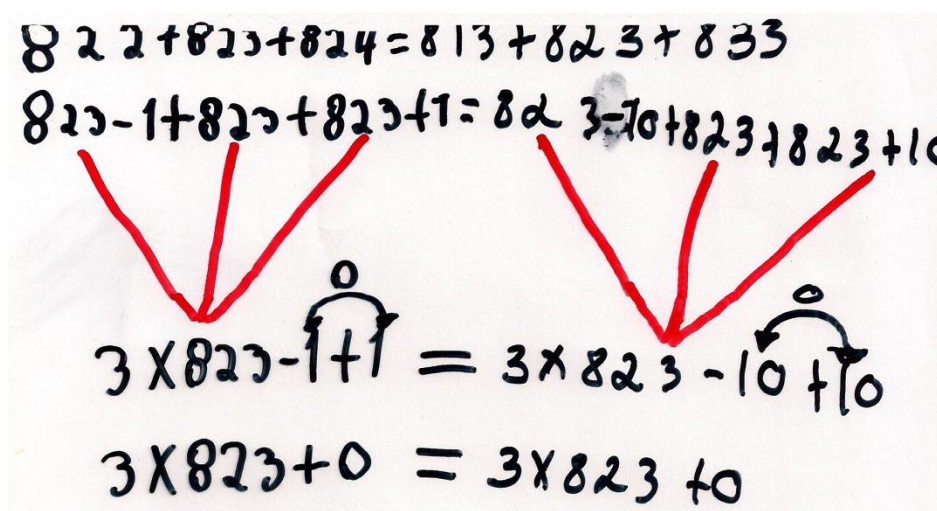 822+823+824=813+823+833
823-1+823+823+1=823-10+823+823+10
0 0
3×823-1+1 = 3×823-10+10
3×823+0 = 3×823+0